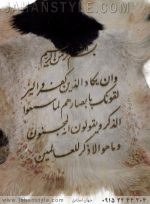 JAHANSTYLE.COM
بسم الله الرحمن الرحیم
وان یکاد الذین کفروا
لیزلقونک بابصارهم لما سمعوا
الذکر ویقولون انه لمجنون
وما هو الا ذکر للعالمین
www.jahanstyle.com
جهان استایل
۰۹۱۵ ۲۲ ۲۲ ۲۰۲